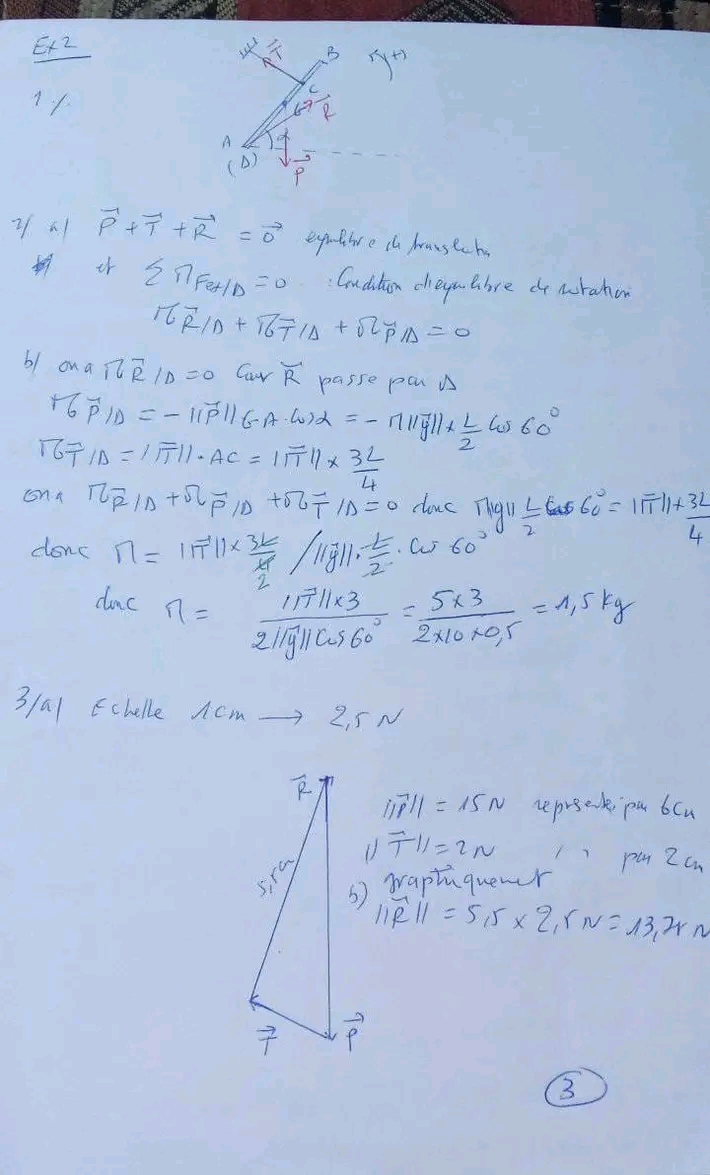 Ex2
1%
B
T
C
G
R
A
(Δ)
α
P
(+)
2/ a) P + T + R = 0 equilibre de translation
et Σ M Fext/Δ = 0 : Condition d'equilibre de rotation
M R/Δ + M T/Δ + M P/Δ = 0
b) on a M R/Δ = 0 Car R passe par Δ
M P/Δ = - ||P|| G.A. Cosα = - M||g|| × L/2 Cos 60°
M T/Δ = ||T||. AC = ||T|| × 3L/4
on a M R/Δ + M P/Δ + M T/Δ = 0 donc M||g|| L/2 Cos 60° = ||T|| × 3L/4
donc M = ||T|| × 3L/4 / ||g||. L/2 . Cos 60°
2
donc M = ||T|| × 3 / 2||g|| Cos 60° = 5 × 3 / 2×10×0,5 = 1,5 kg
3/a) Echelle 1cm → 2,5 N
R
5,5cm
T
P
||P|| = 15N représenté par 6cm
||T|| = 2N " par 2cm
b) graphiquement
||R|| = 5,5 × 2,5N = 13,75 N
3